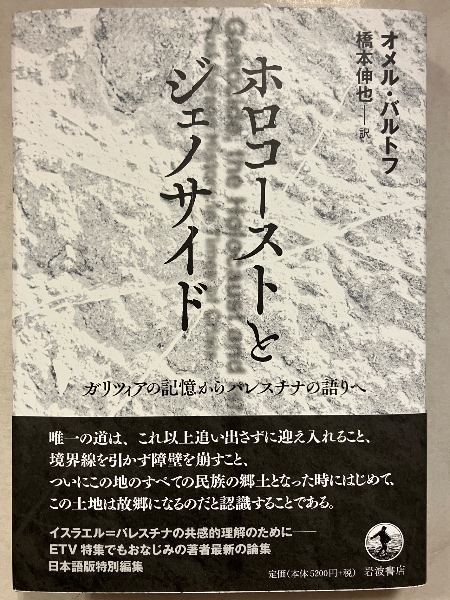 オメル・バルトフ
橋本伸也――訳
ホロコーストと
ジェノサイド
ガリツィアの記憶からパレスチナの語りへ
唯一の道は、これ以上追い出さずに迎え入れること、
境界線を引かず障壁を崩すこと、
ついにこの地のすべての民族の郷土となった時にはじめて、
この土地は故郷になるのだと認識することである。
イスラエル=パレスチナの共感的理解のために――
ETV特集でもおなじみの著者最新の論集
日本語版特別編集
定価(本体5200円+税)
岩波書店